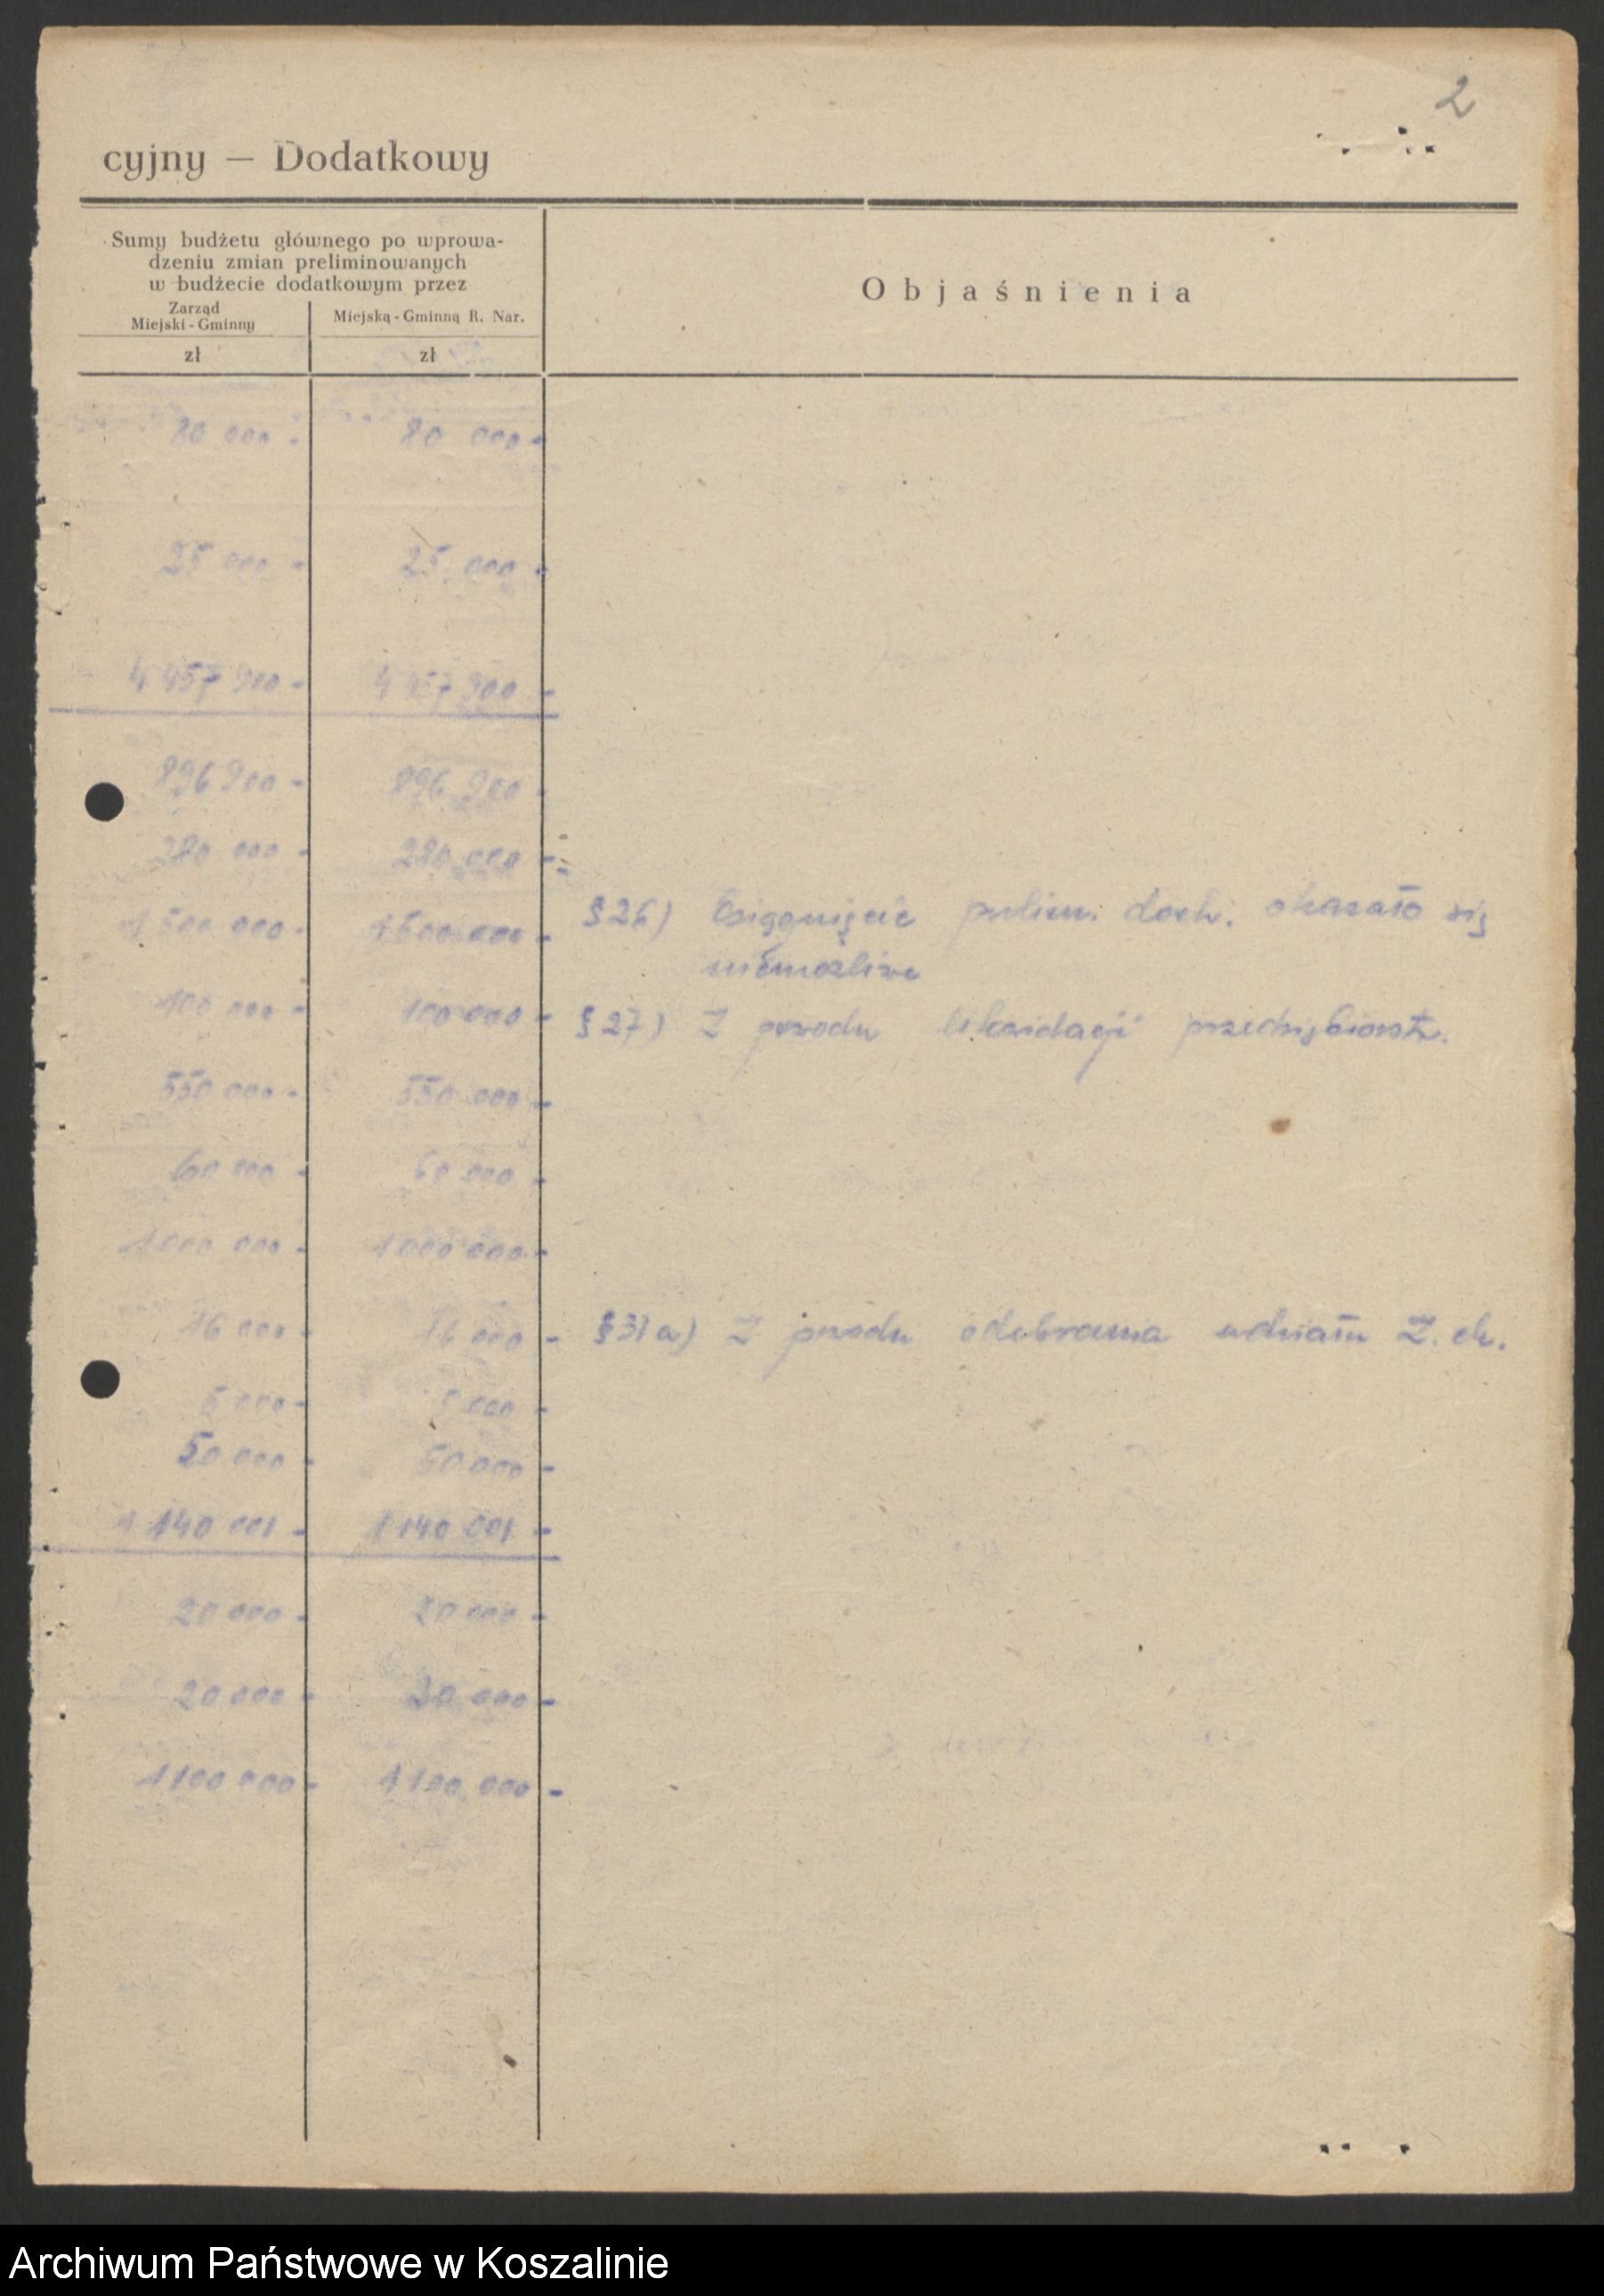 2
cyjny — Dodatkowy
Sumy budżetu głównego po wprowa-
dzeniu zmian preliminowanych
w budżecie dodatkowym przez
Zarząd
Miejski - Gminny
Miejską - Gminną R. Nar.
zł zł
Objaśnienia
80 000 - 80 000 -
25 000 - 25 000 -
4 957 900 - 4 957 900 -
896 900 - 896 900 -
280 000 - 280 000 -
1 500 000 - 1 500 000 - § 26) Osiągnięcie prelim. doch. okazało się
niemożliwe
100 000 - 100 000 - § 27) Z powodu likwidacji przedsiębiorstw.
550 000 - 550 000 -
60 000 - 60 000 -
1 000 000 - 1 000 000 -
16 000 - 16 000 - § 31a) Z powodu odebrania udziału
5 000 - 5 000 -
50 000 - 50 000 -
1 140 001 - 1 140 001 -
20 000 - 20 000 -
20 000 - 20 000 -
1 100 000 - 1 100 000 -
Archiwum Państwowe w Koszalinie